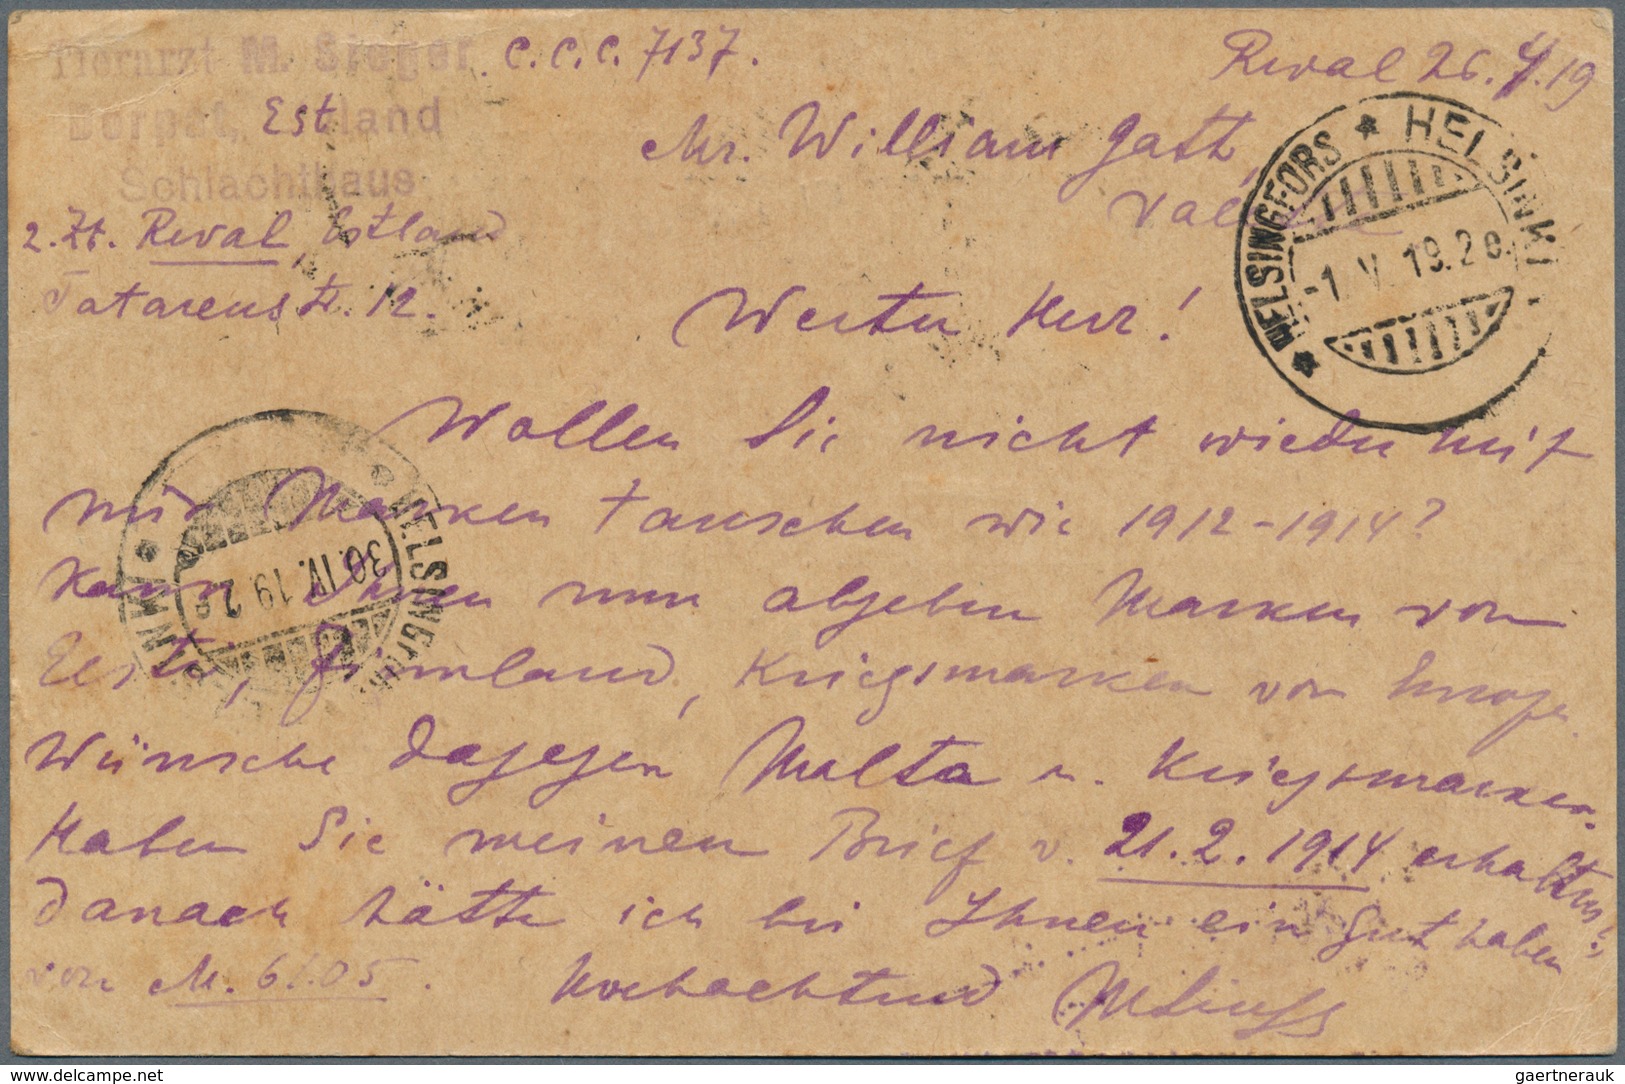 Tierarzt M. Sieger. C.C.C. 7137.
Reval 26.4.19
Dorpat, Estland
Schlachthaus
Mr. William Gatt,
z. Zt. Reval, Estland
Tatarenstr. 12.
Werter Herr!
Wollen Sie nicht wieder mit
mir Marken tauschen wie 1912-1914?
Kann Ihnen nun abgeben Marken von
Eesti, Finnland, Kriegsmarken von Europa.
Wünsche dagegen Malta u. Kriegsmarken.
Haben Sie meinen Brief v. 21.2.1914 erhalten?
danach hätte ich bei Ihnen ein Guthaben
von M. 61.05.
Hochachtend
HELSINGFORS * HELSINKI
-1. V. 19. 2 e.
HELSINGF
30. IV. 19. 2 e
NKI
gaertnerauk
delcampe.net